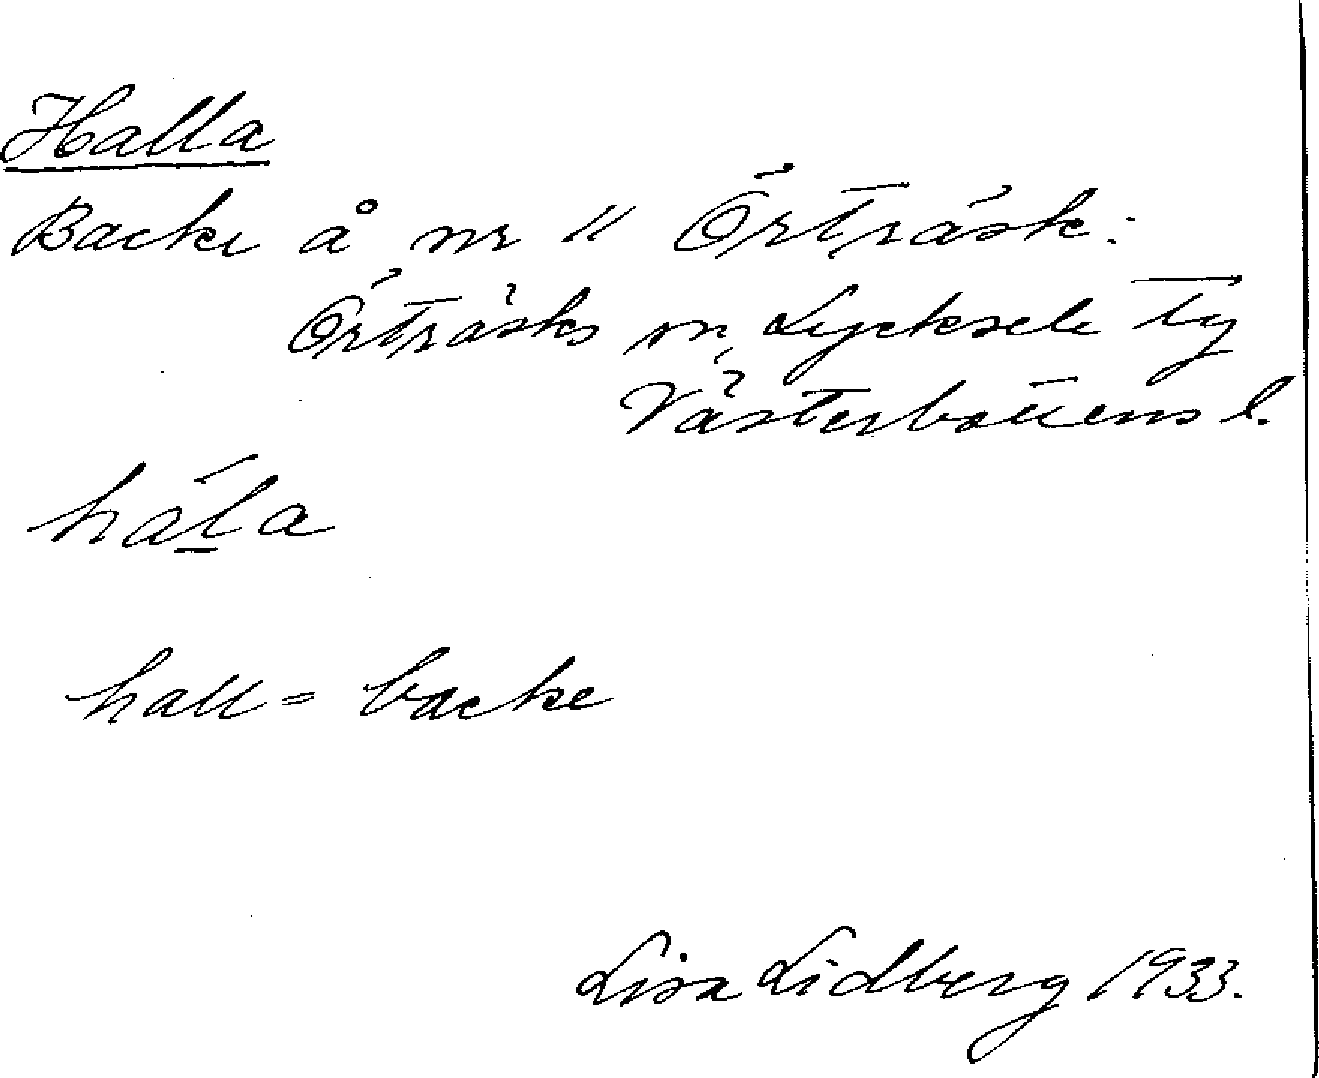 Halla
Backe å nr 11 Örträsk:
Örträsks sn, Lycksele tg
Västerbottens l.
háḻa
hall = backe
Lisa Lidberg 1933.